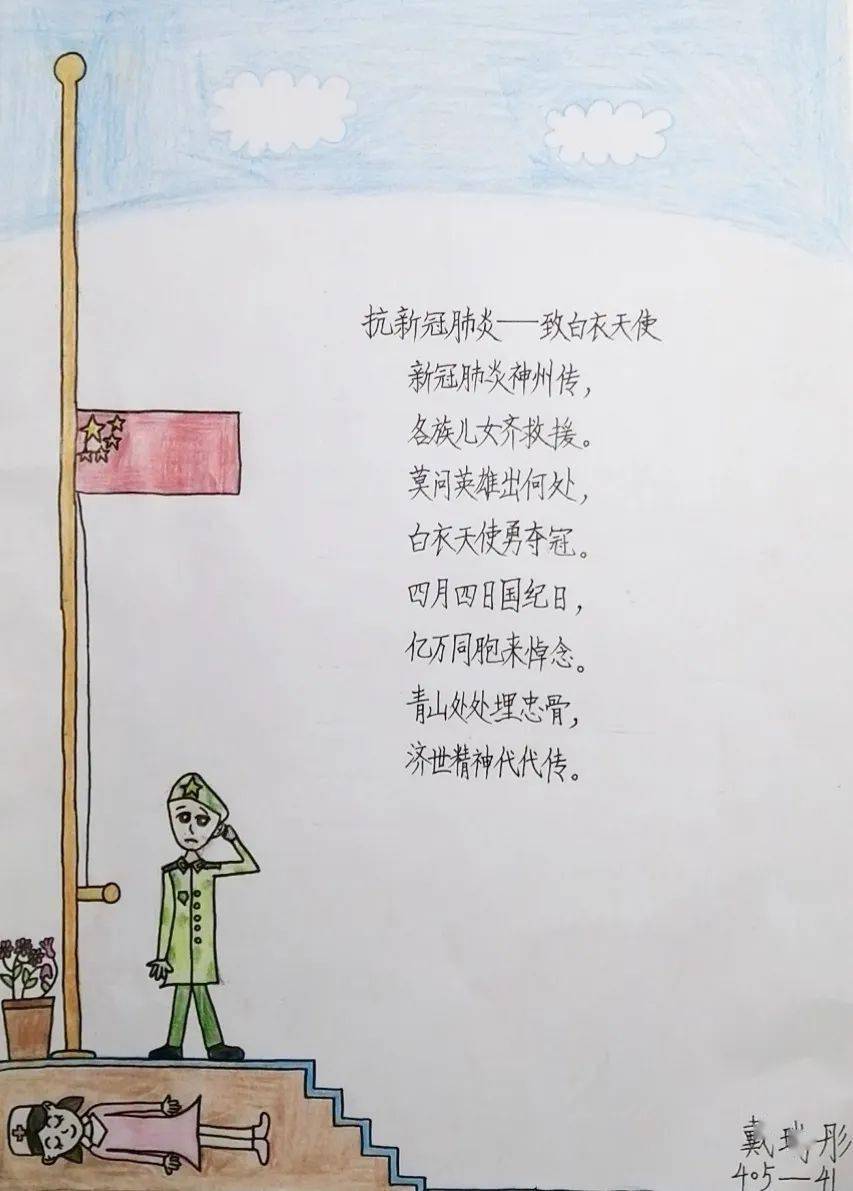 抗新冠肺炎——致白衣天使
新冠肺炎神州传,
各族儿女齐救援。
莫问英雄出何处,
白衣天使勇夺冠。
四月四日国纪日,
亿万同胞来悼念。
青山处处埋忠骨,
济世精神代代传。
戴 彤
405—41